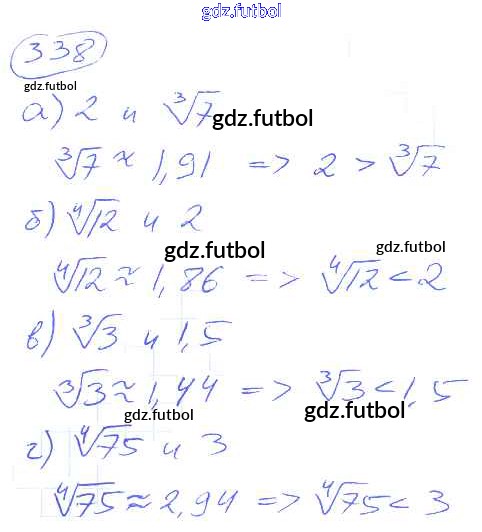 gdz.futbol
338
gdz.futbol
а) 2 и ∛7
gdz.futbol
∛7 ≈ 1,91 => 2 > ∛7
б) ∜12 и 2
gdz.futbol
gdz.futbol
∜12 ≈ 1,86 => ∜12 < 2
в) ∛3 и 1,5
∛3 ≈ 1,44 => ∛3 < 1,5
gdz.futbol
gdz.futbol
г) ∜75 и 3
∜75 ≈ 2,94 => ∜75 < 3